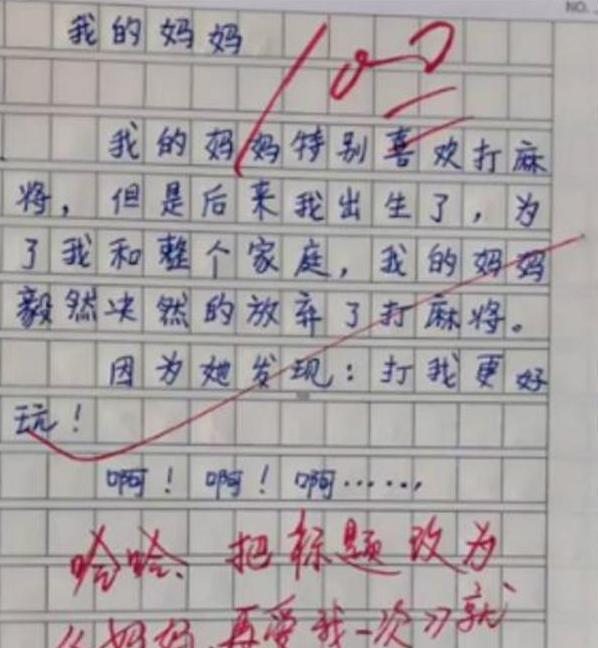 NO.
我的妈妈
100
我的妈妈特别喜欢打麻
将，但是后来我出生了，为
了我和整个家庭，我的妈妈
毅然决然的放弃了打麻将。
因为她发现：打我更好
玩！
啊！啊！啊……，
哈哈、把标题改为
《妈妈,再爱我一次》就